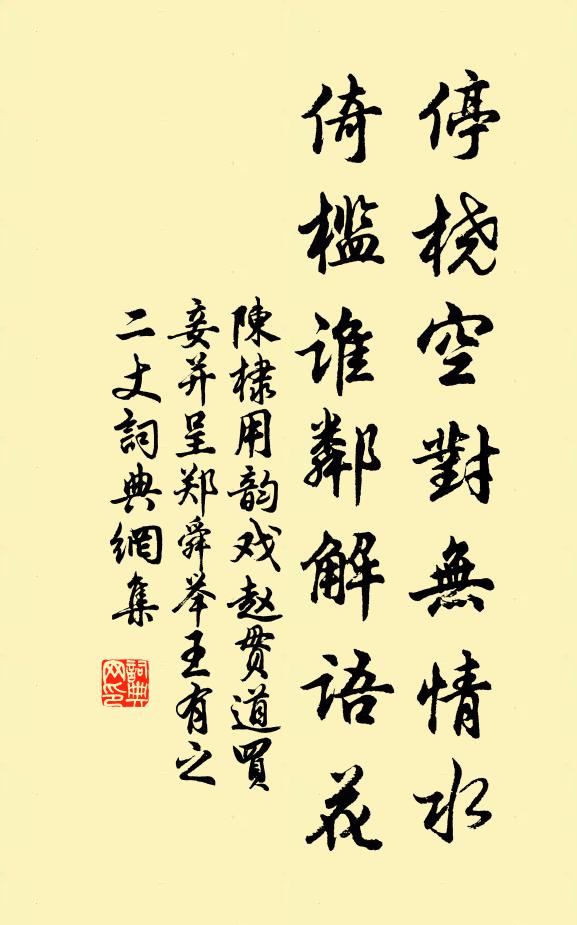 停桡空對無情水
倚檻谁鄰解语花
陳棣用韵戏赵贯道買
妾并呈郑舜举王有之
二丈詞典網集
詞典网印